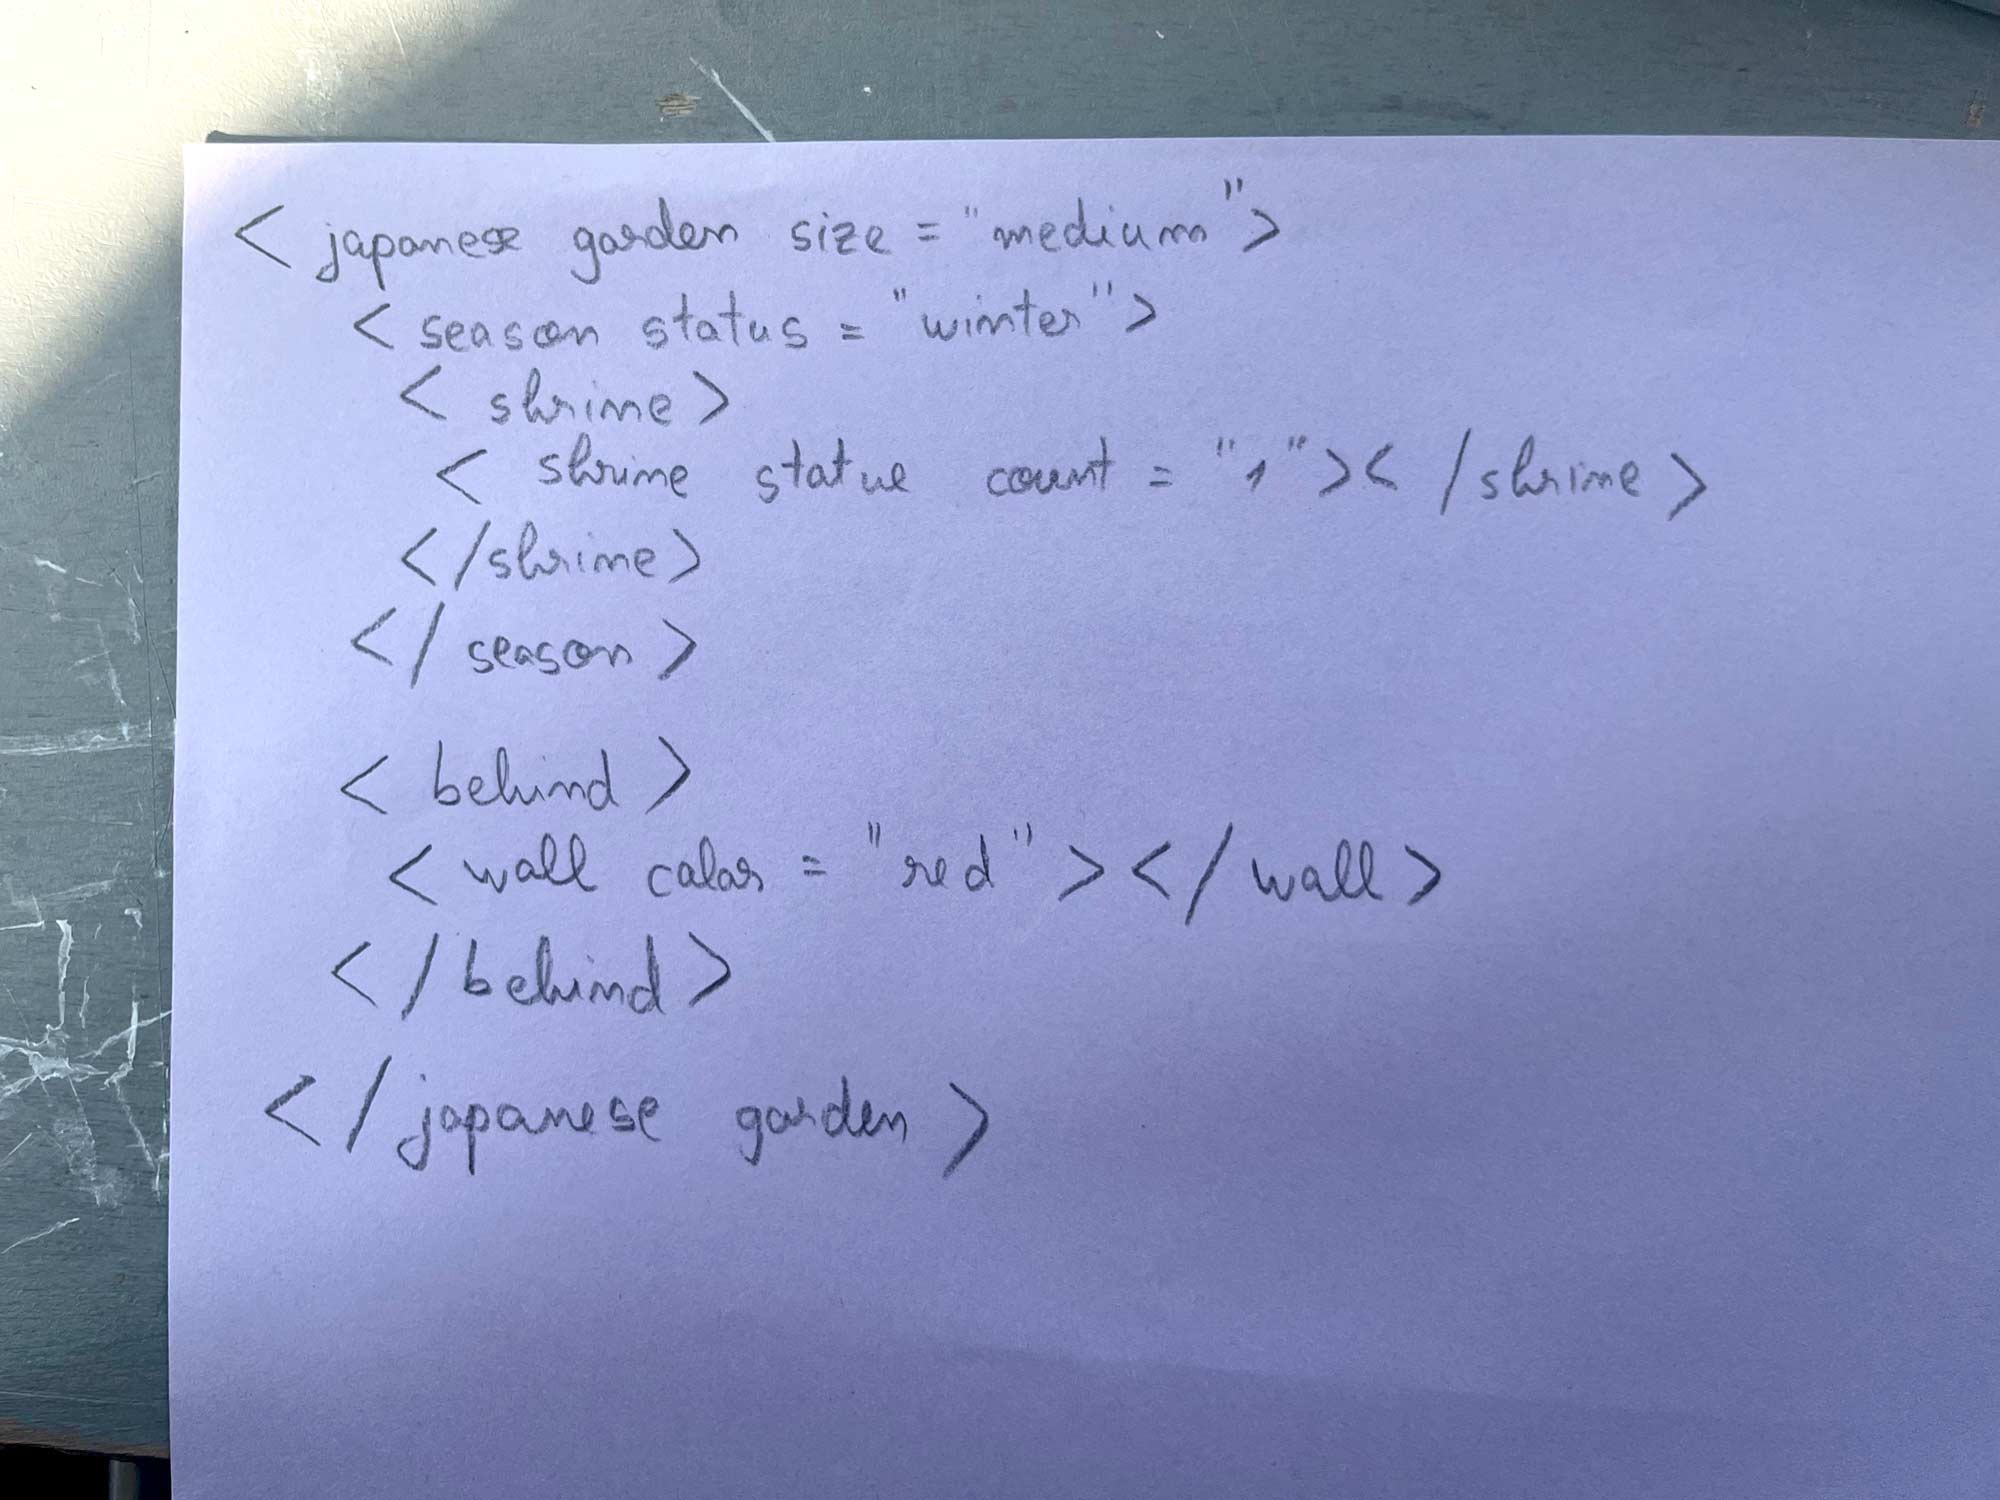 < japanese garden size = "medium">
< season status = "winter">
< shrine >
< shrine statue count = "1">< /shrine >
</shrine>
</ season >
< behind >
< wall color = "red" ></ wall >
</ behind >
</ japanese garden >